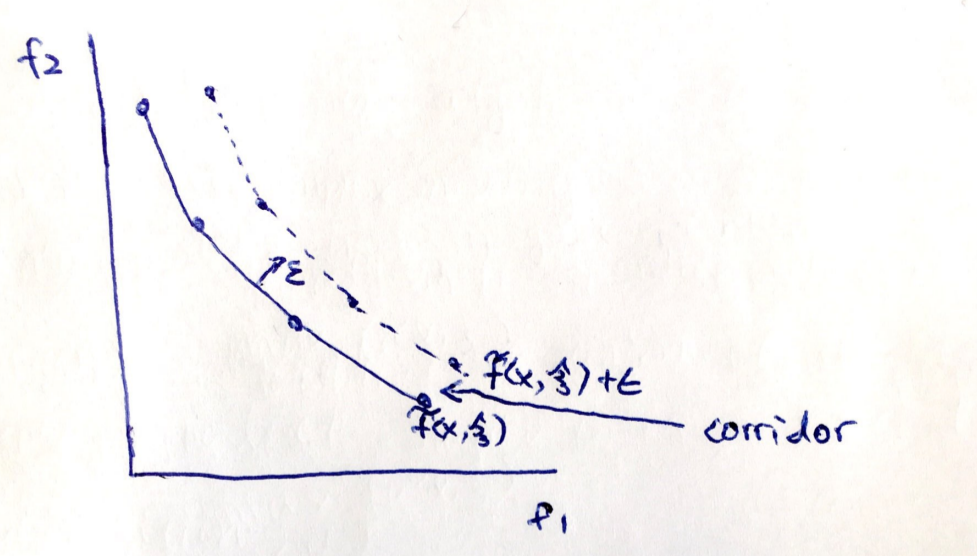 f2
ε
f̃(x, ξ̂) + ε
f̃(x, ξ̂)
corridor
f1